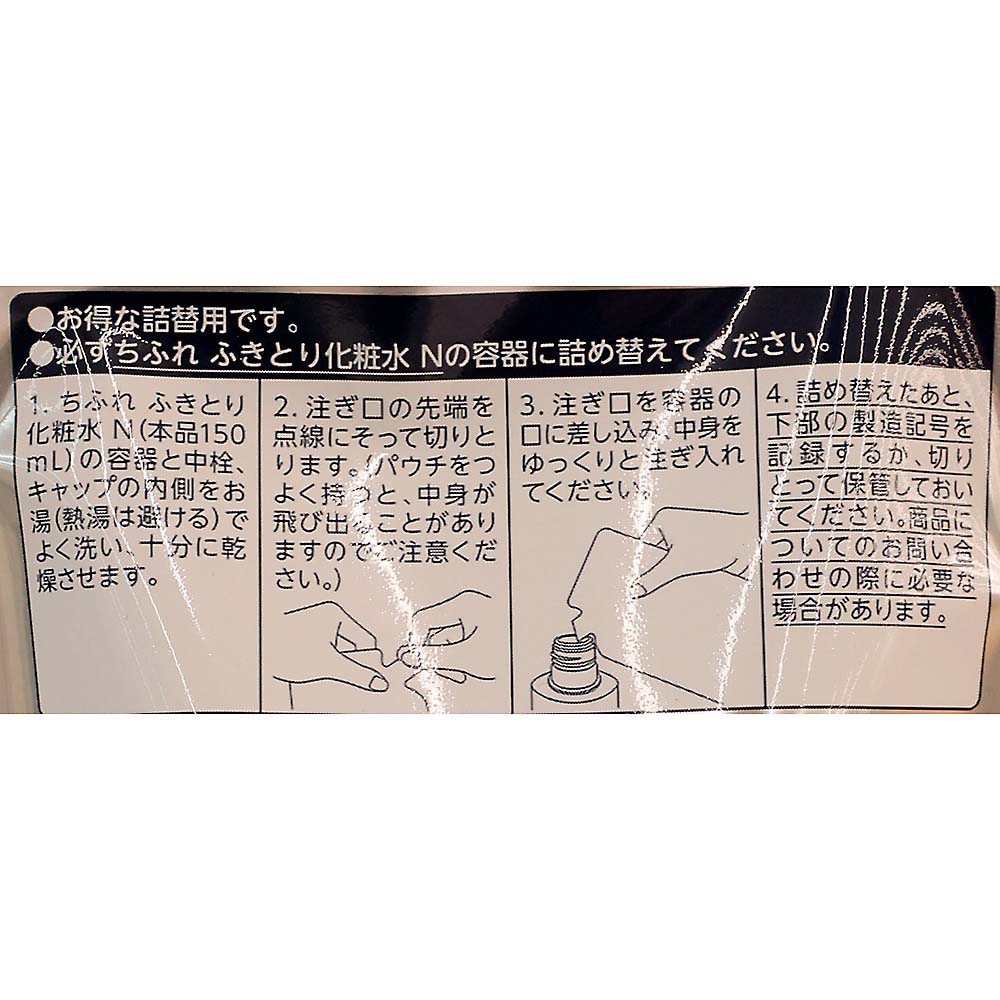 ●お得な詰替用です。
●必ずちふれ ふきとり化粧水 Nの容器に詰め替えてください。
1. ちふれ ふきとり
化粧水 N(本品150
mL)の容器と中栓、
キャップの内側をお
湯(熱湯は避ける)で
よく洗い、十分に乾
燥させます。
2. 注ぎ口の先端を
点線にそって切りと
ります。(パウチをつ
よく持つと、中身が
飛び出ることがあり
ますのでご注意くだ
さい。)
3. 注ぎ口を容器の
口に差し込み、中身を
ゆっくりと注ぎ入れ
てください。
4. 詰め替えたあと、
下部の製造記号を
記録するか、切り
とって保管しておい
てください。商品に
ついてのお問い合
わせの際に必要な
場合があります。